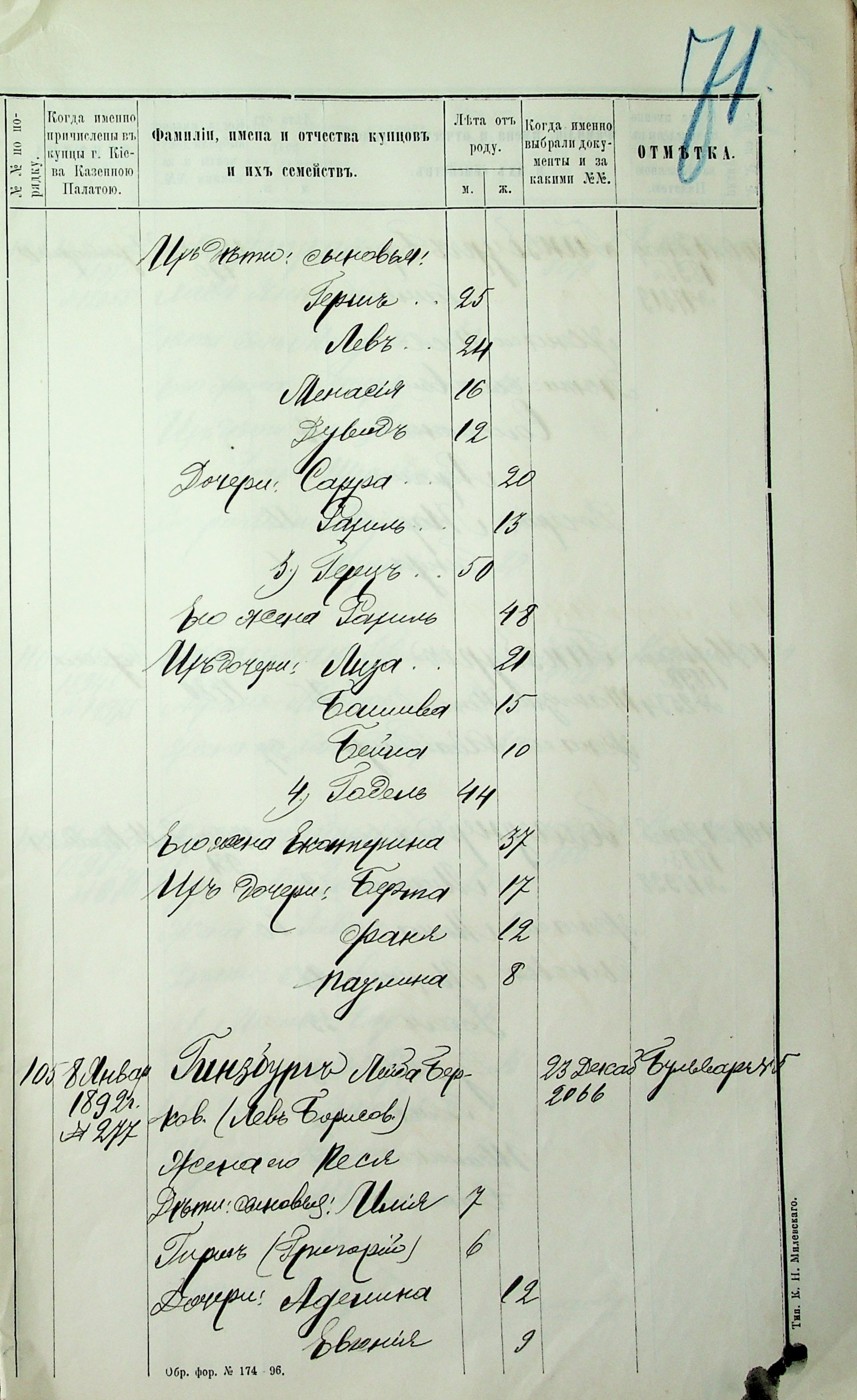 71.
№№ по порядку.
Когда именно причислены въ купцы г. Кіева Казенною Палатою.
Фамиліи, имена и отчества купцовъ и ихъ семействъ.
Лѣта отъ роду.
м. ж.
Когда именно выбрали документы и за какими №№.
ОТМѢТКА.
Ихъ дѣти: сыновья:
Гершъ . . 25
Левъ . . 24
Менасія 16
Дувидъ 12
Дочери: Сарра . . 20
Рахиль . . 13
3) Герцъ . . 50
Его жена Рахиль 48
Ихъ дочери: Лиза . . 21
Башива 15
Бейла 10
4) Годель 44
Его жена Екатерина 37
Ихъ дочери: Берта 17
Фаня 12
Паулина 8
105 8 Январ Гинзбургъ Лейба Бер- 23 Декаб Бульваръ №5
1892г. ков. (Левъ Борисов.) 2066
№ 277
Жена его Песя
Дѣти: сыновья: Илія 7
Гиршъ (Григорій) 6
Дочери: Аделина 12
Евгенія 9
Обр. фор. № 174 - 96.
Тип. К. Н. Милевскаго.